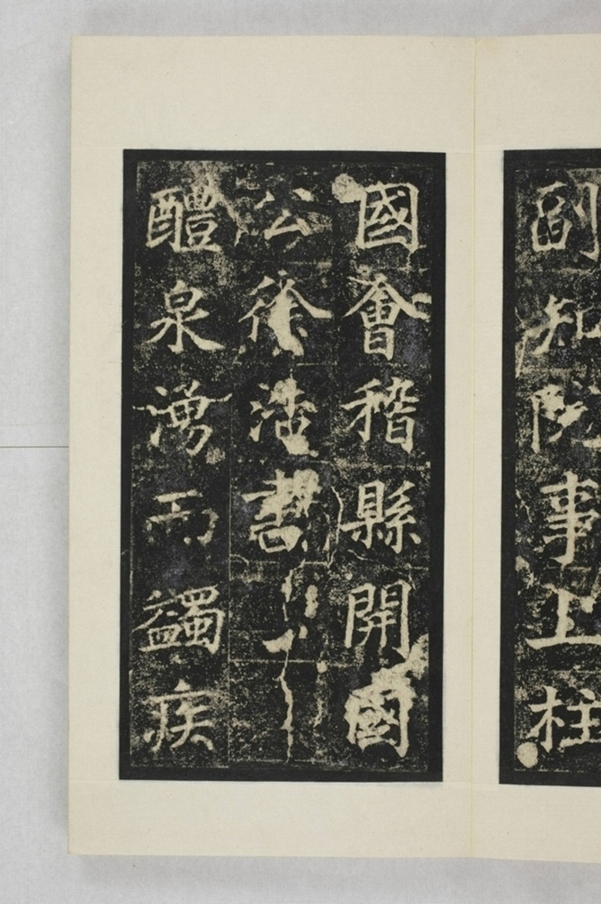 副知院事上柱
國會稽縣開國
公徐浩書
醴泉湧而蠲疾